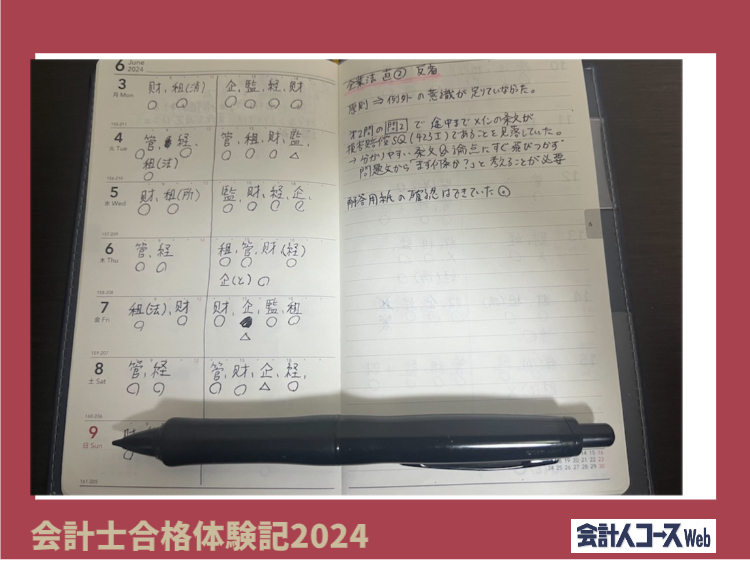 6 June
2024
3 財、租(消) 企、監、経、財
月 Mon ○ ○ ○ ○ ○ ○
4 管、経、 管、租、財、監、
火 Tue ○ ○ ○ ○ ○ △
租(法)
○
5 財、租(所) 監、財、経、企、
水 Wed ○ ○ ○ ○ ○ ○
6 管、経 租、管、財(経)
木 Thu ○ ○ ○ ○ ○
企(と) ○
7 租(法)、財 財、企、監、租
金 Fri ○ ○ ○ ○ ○
△
8 管、経 管、財、企、経、
土 Sat ○ ○ ○ ○ △ ○
9 財
日 Sun ○
企業法 直② 反省
原則 ⇒ 例外 の意識が足りていなかった。
第2問の問2で 途中までメインの条文が
損害賠償SQ(423Ⅰ)であることを見落していた。
→分かりやすい条文や論点にすぐ飛びつかず
問題文から「まず何条か?」と考えることが必要
解答用紙の確認はできていた
会計士合格体験記2024
会計人コースWeb